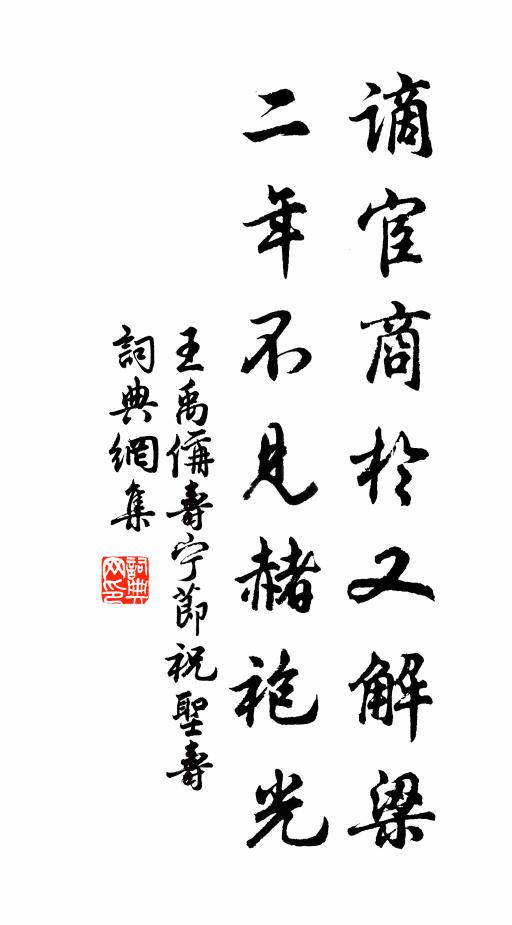 谪宦商於又解梁
二年不见赭袍光
王禹偁壽宁節祝聖壽
詞典網集
詞典网印